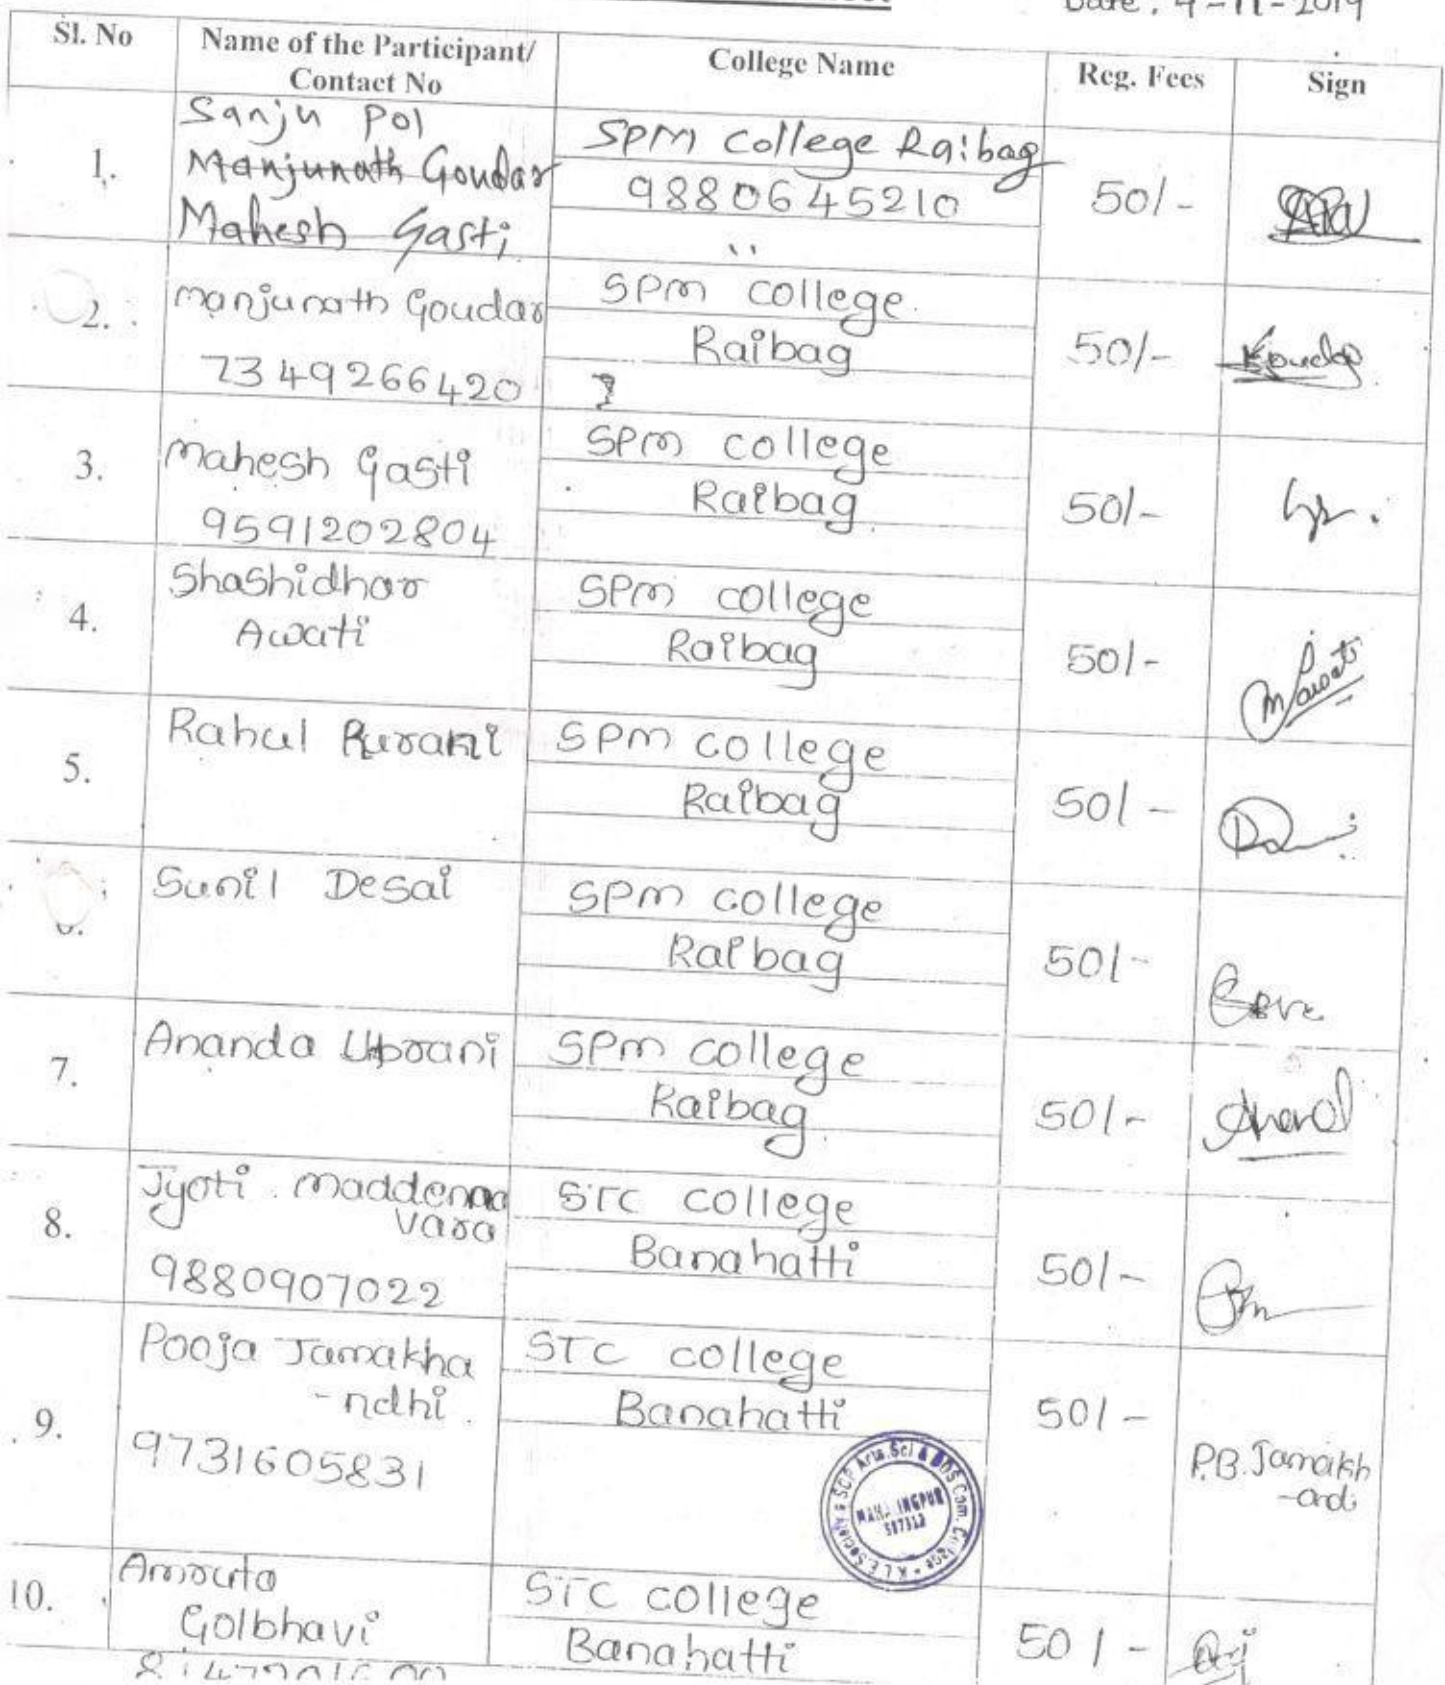 Date : 9-11-2019
Sl. No
Name of the Participant/
Contact No
College Name
Reg. Fees
Sign
1.
Sanju Pol
Manjunath Goudar
Mahesh Gasti
SPM College Raibag
9880645210
"
50/-
2.
Manjunath Goudar
7349266420
SPM College
Raibag
50/-
3.
Mahesh Gasti
9591202804
SPM college
Raibag
50/-
4.
Shashidhar
Awati
SPM college
Raibag
50/-
5.
Rahul
SPM college
Raibag
50/-
6.
Sunil Desai
SPM college
Raibag
50/-
7.
Ananda Uprani
SPM college
Raibag
50/-
Anand
8.
Jyoti Maddenna
vara
9880907022
STC college
Banahatti
50/-
9.
Pooja Jamakha
-ndhi
9731605831
STC college
Banahatti
50/-
P.B. Jamakh
-andi
K.L.E. Society's SCP Arts, Sci & DDS Com. College
MAHALINGPUR
587312
10.
Amruta
Golbhavi
STC college
Banahatti
50/-